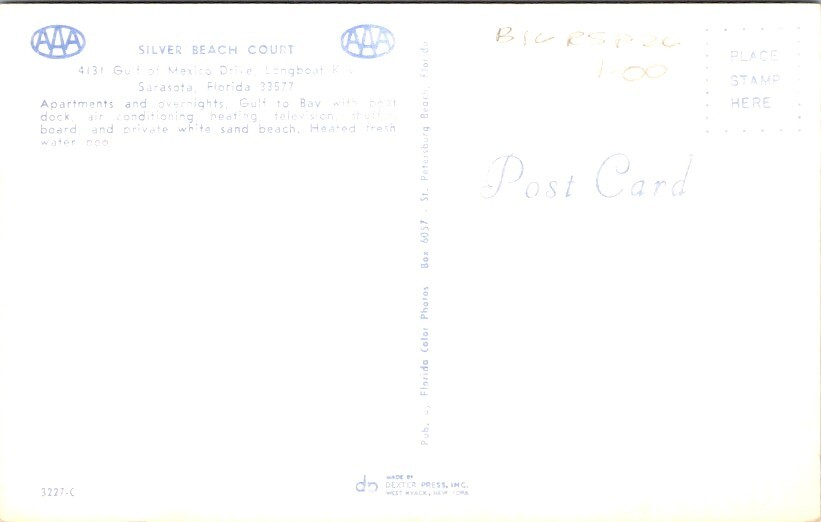 AAA
AAA
SILVER BEACH COURT
4131 Gulf of Mexico Drive, Longboat
Sarasota, Florida 33577
Apartments and overnights. Gulf to Bay with boat
dock, air conditioning, heating, television,
board and private white sand beach. Heated fresh
water
Florida Color Photos Box 6057 - St. Petersburg Beach, Florida
1.00
PLACE
STAMP
HERE
Post Card
3227-C
dp
MADE BY
DEXTER PRESS, INC.
WEST NYACK, NEW YORK